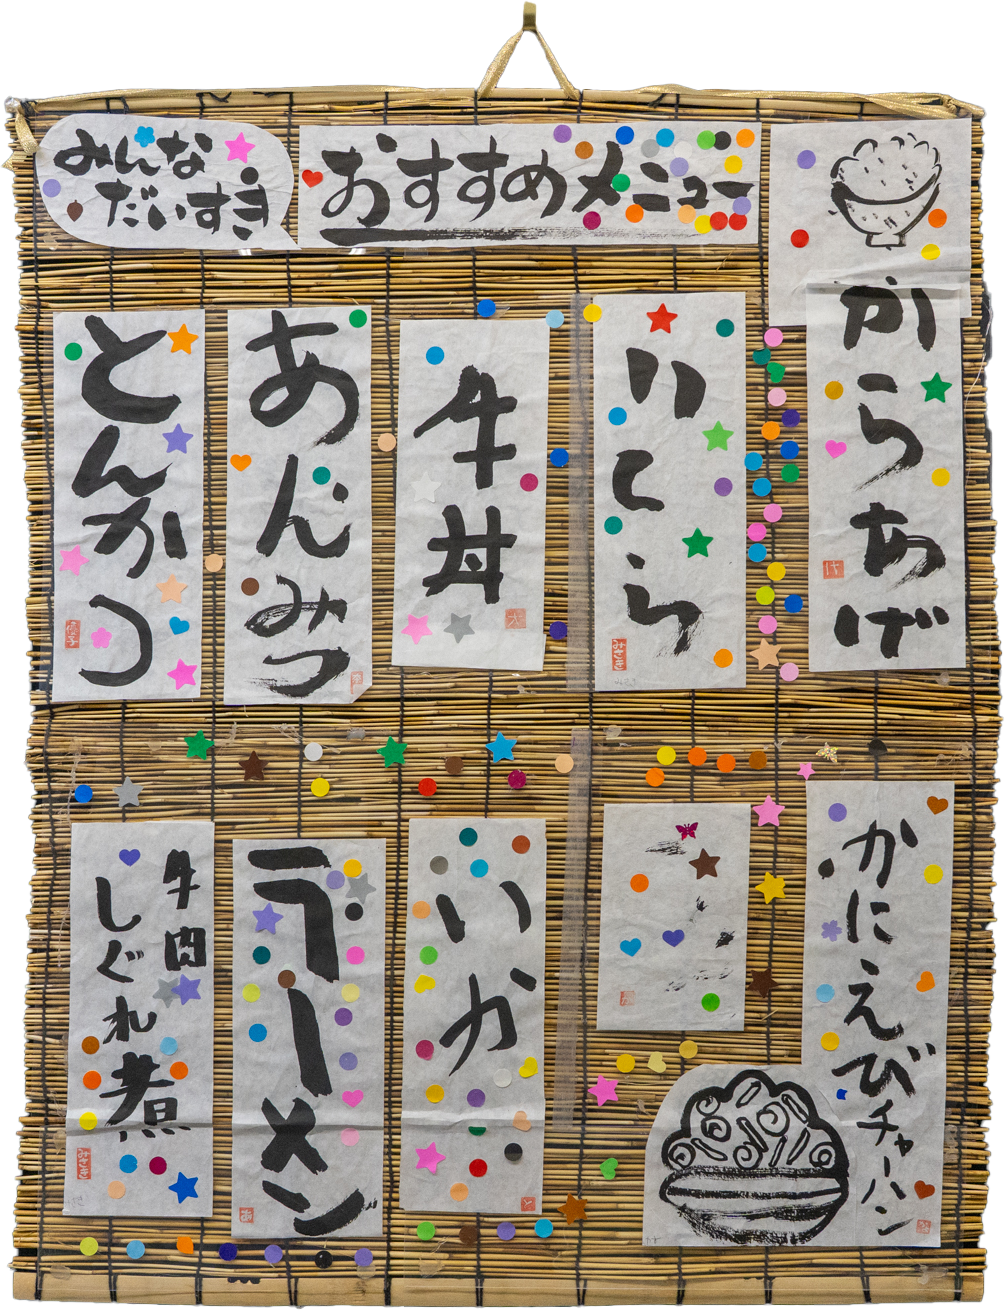 みんな
だいすき
おすすめメニュー
からあげ
いくら
牛丼
あんみつ
とんかつ
かにえびチャーハン
いか
ラーメン
牛肉
しぐれ煮
みさき
みさき